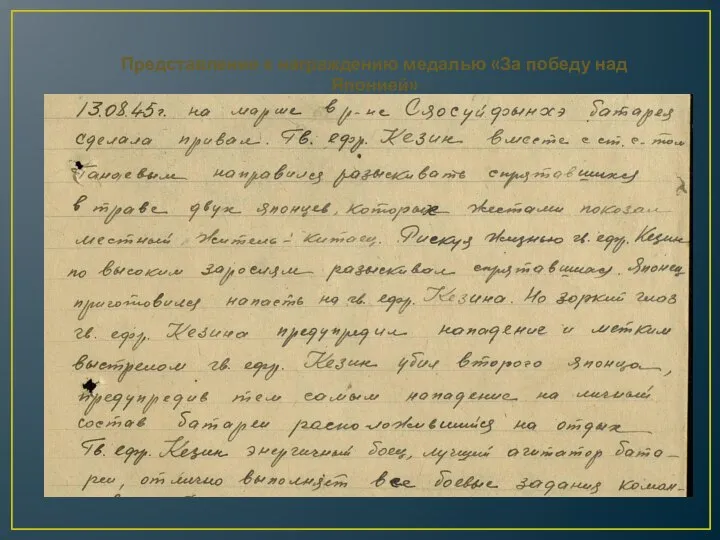 Представление к награждению медалью «За победу над
Японией»
13.08.45г. на марше в р-не Сяосуйфынхэ батарея
сделала привал. Гв. ефр. Кезин вместе с ст. с-том
Танаевым направился разыскивать спрятавшихся
в траве двух японцев, которых жестами показал
местный житель-китаец. Рискуя жизнью гв. ефр. Кезин
по высоким зарослям разыскивал спрятавшихся. Японец
приготовился напасть на гв. ефр. Кезина. Но зоркий глаз
гв. ефр. Кезина предупредил нападение и метким
выстрелом гв. ефр. Кезин убил второго японца,
предупредив тем самым нападение на личный
состав батареи расположившийся на отдых
Гв. ефр. Кезин энергичный боец, лучший агитатор бата-
реи, отлично выполняет все боевые задания коман-